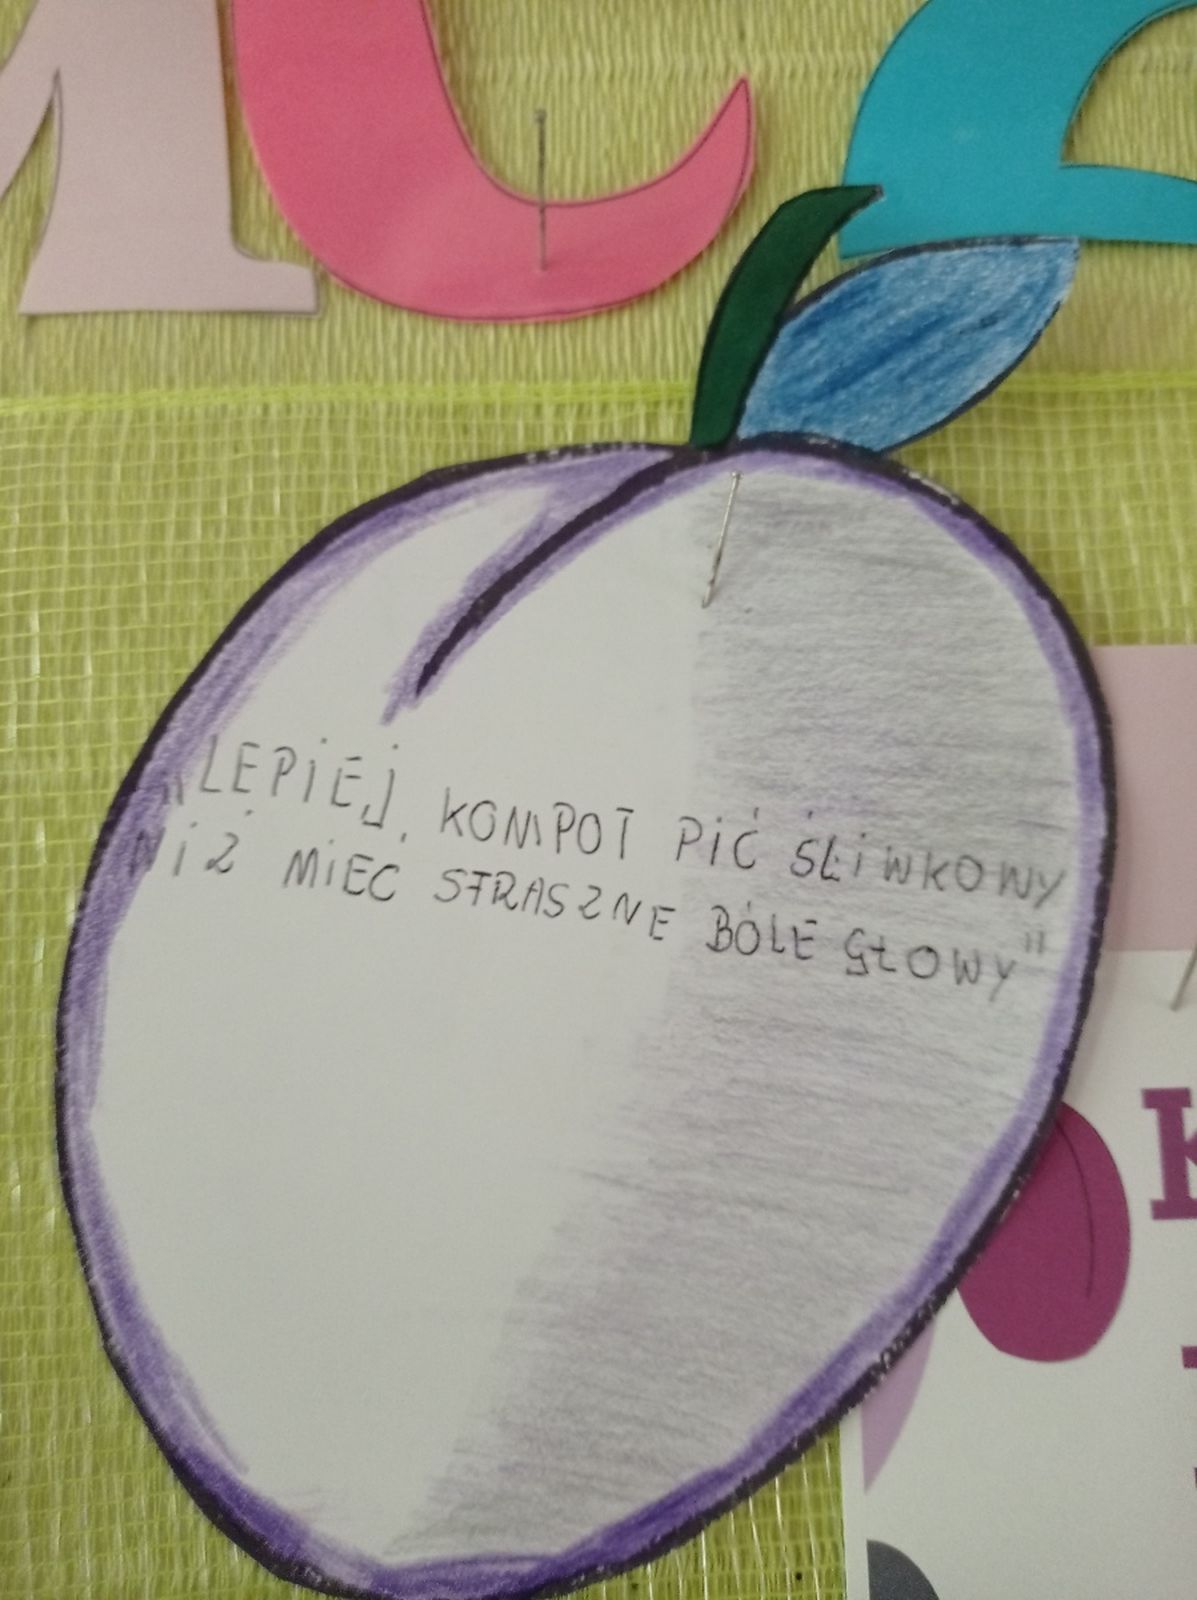 „LEPIEJ KOMPOT PIĆ ŚLIWKOWY
NIŻ MIEC STRASZNE BÓLE GŁOWY"
K